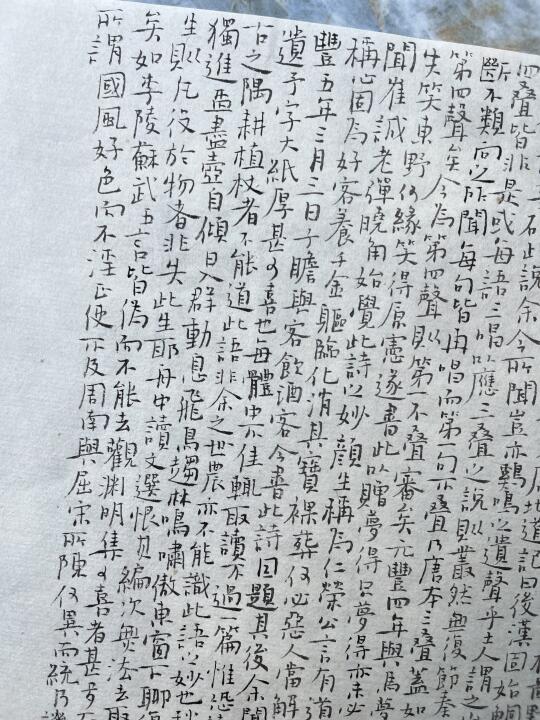 石此說余今所聞豈亦雞鳴之遺聲乎土人謂之
北道記曰後漢固始
四疊皆非是或每語三唱以應三疊之說則叢然無復節奏
斷不類向之所聞每句皆再唱而第一句不疊乃唐本三疊蓋如
第四聲矣今為第四聲則第一不疊審矣元豐四年與馬夢
失笑東野何緣笑得原憲遂書此以贈夢得只夢得亦未必
聞崔誠老彈曉角始覺此詩之妙顏生稱為仁榮公言有道
稱心固為好客養千金軀臨化消其寶裸葬何必惡人當解
豐五年三月三日子瞻與客飲酒客令書此詩因題其後余聞
遺予字大紙厚甚可喜也每體中不佳輒取讀不過一篇惟恐
古之隅耕植杖者不能道此語非余之世農亦不能識此語之妙也
獨進盃盡壺自傾日入群動息飛鳥趨林鳴嘯傲東窗下聊復
生則凡役於物者非失此生耶舟中讀文選恨其編次無法去取
矣如李陵蘇武五言皆偽而不能去觀淵明集可喜者甚多
所謂國風好色而不淫正使不及周南與屈宋所陳何異而統乃